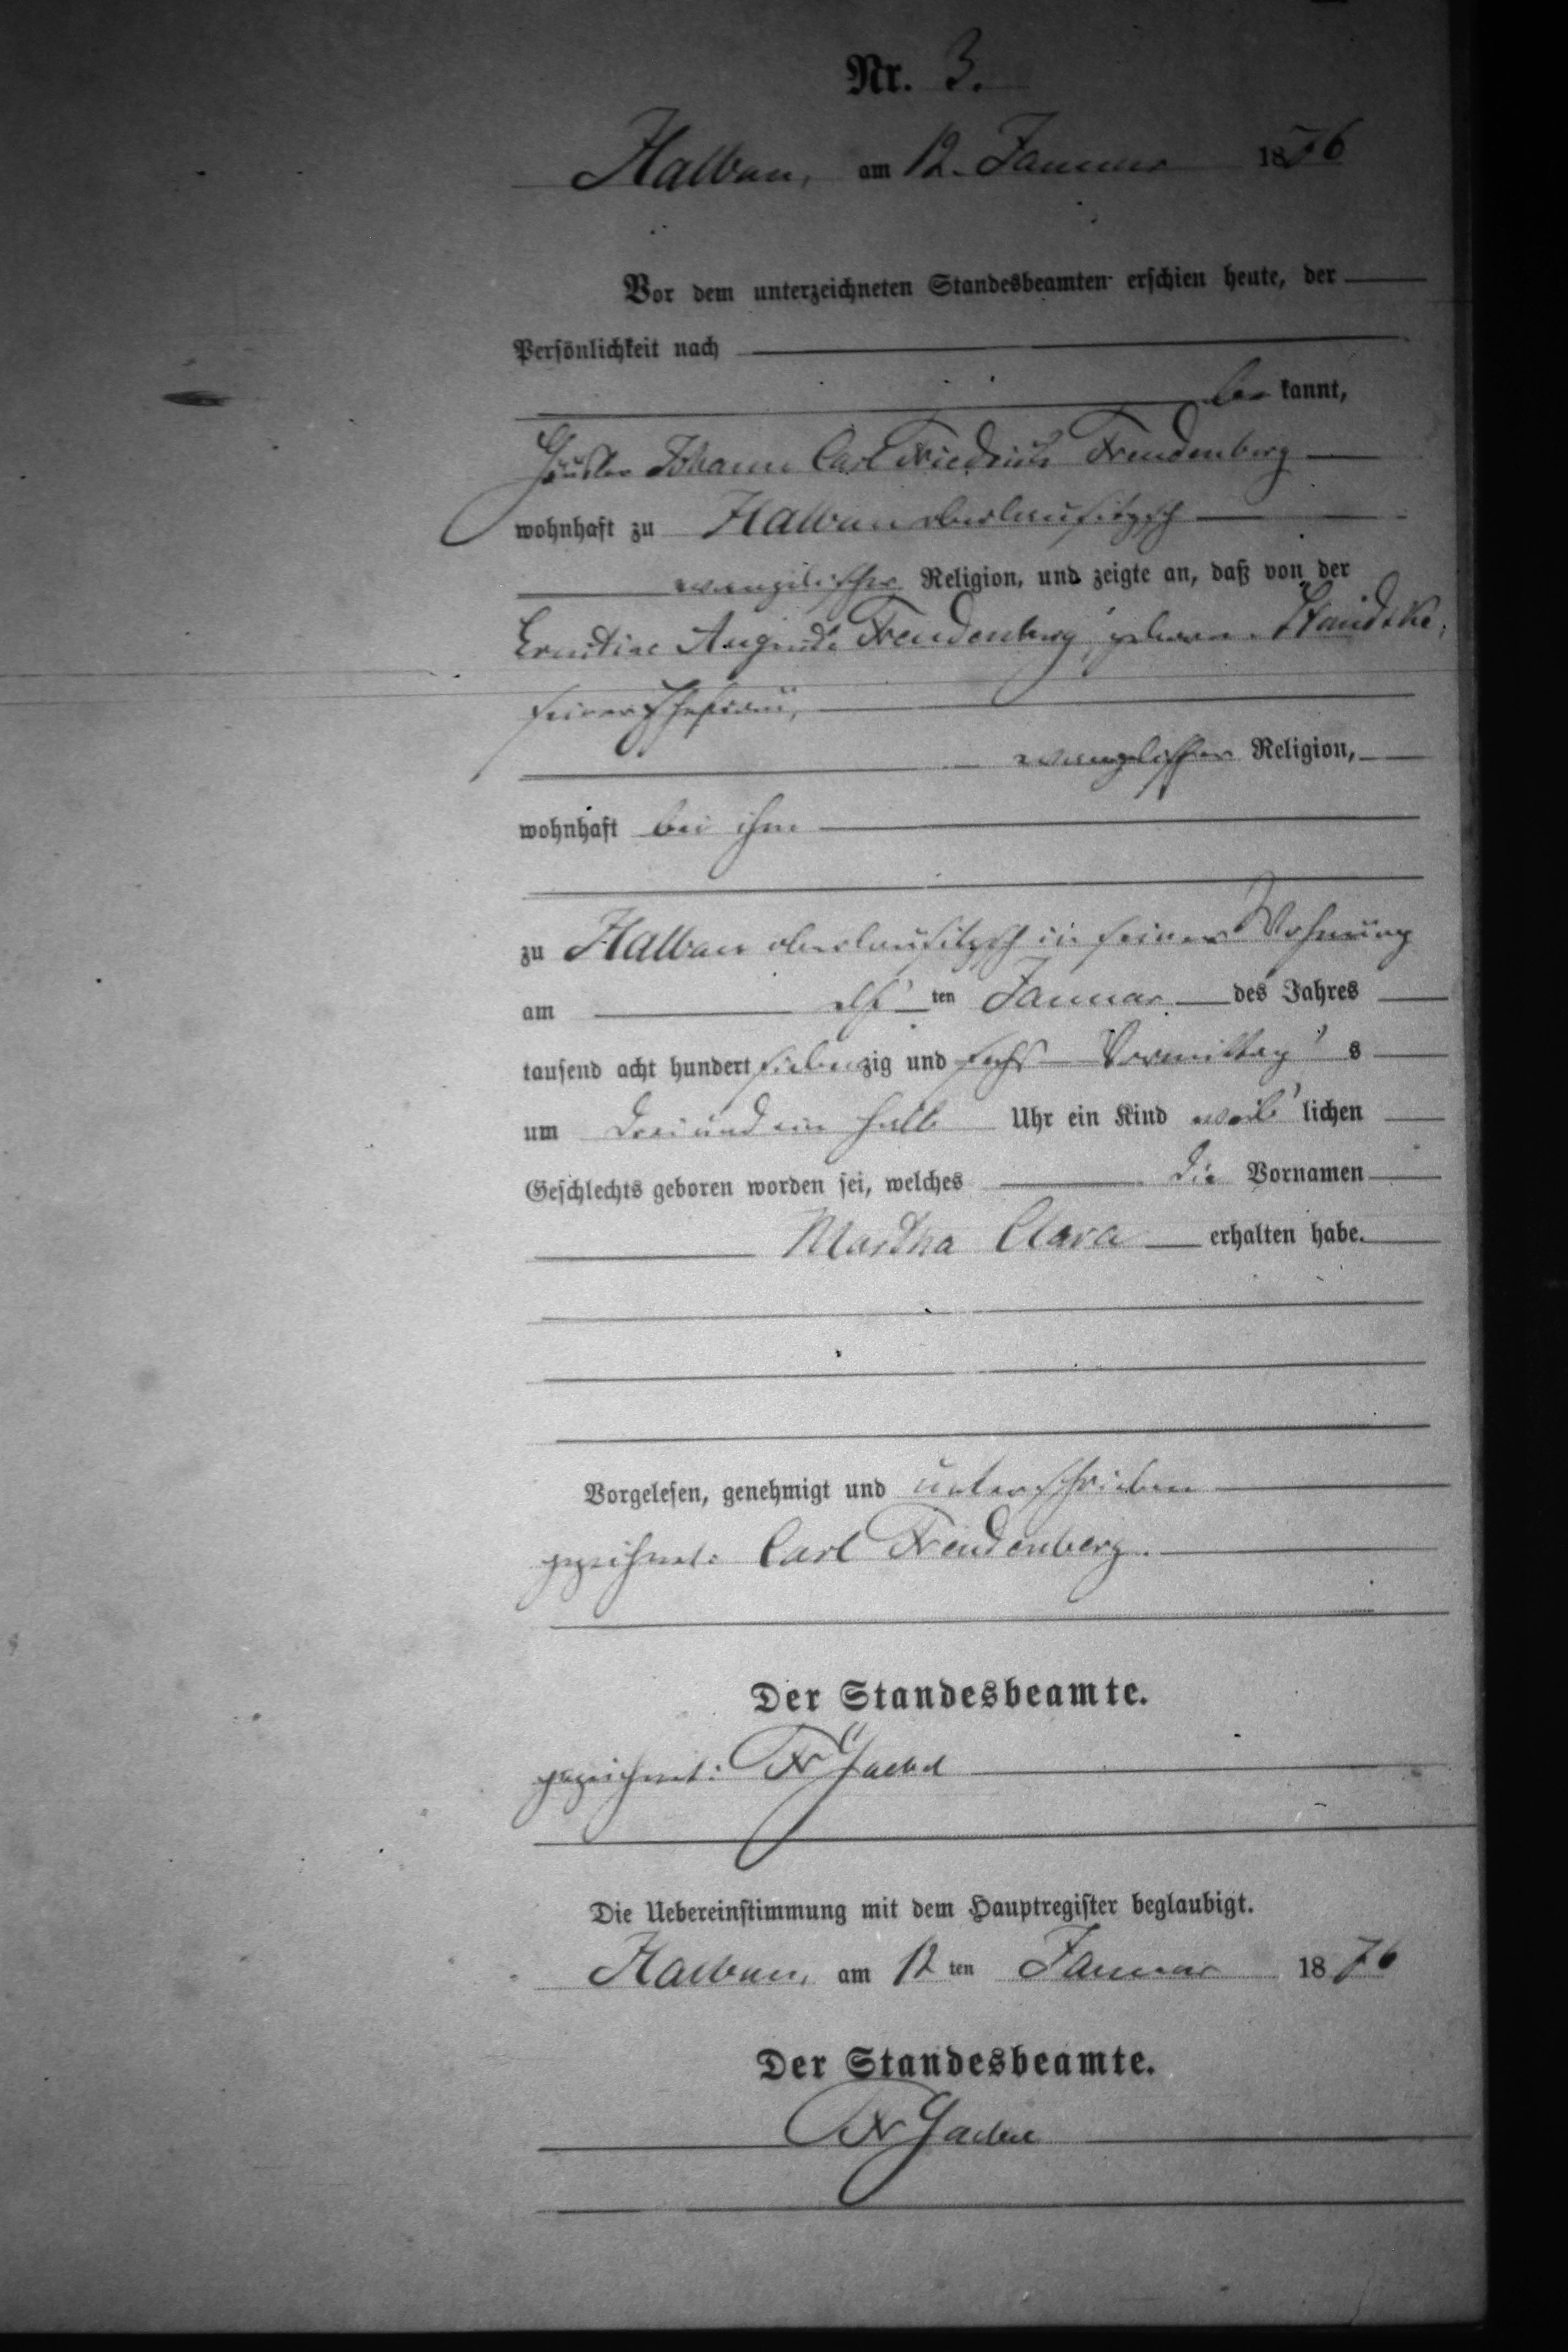 Nr. 3.
Halbau, am 12. Januar 1876
Vor dem unterzeichneten Standesbeamten erschien heute, der
Persönlichkeit nach
be kannt,
Häusler Johann Carl Friedrich Freudenberg
wohnhaft zu Halbau oberlausitzsch
evangelischer Religion, und zeigte an, daß von der
Ernstine Auguste Freudenberg, geborn.
seiner Ehefrau,
evangelischer Religion,
wohnhaft bei ihm
zu Halbau oberlausitzsch in seiner Wohnung
am elf ten Januar des Jahres
tausend acht hundert siebenzig und sechs Vormittag s
um drei und ein halb Uhr ein Kind weib lichen
Geschlechts geboren worden sei, welches die Vornamen
Martha Clara erhalten habe.
Vorgelesen, genehmigt und unterschrieben
gezeichnet: Carl Freudenberg.
Der Standesbeamte.
gezeichnet: Fr
Die Uebereinstimmung mit dem Hauptregister beglaubigt.
Halbau, am 12 ten Januar 1876
Der Standesbeamte.
Fr